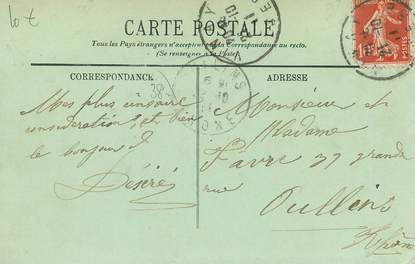 lot
CARTE POSTALE
Tous les Pays étrangers n'acceptent pas la Correspondance au recto.
(Se renseigner à la Poste).
CORRESPONDANCE
ADRESSE
38
Mes plus sincère
considération, et bien
le bonjour
Désiré
Monsieur et
Madame
Favre 37 grande
rue
Oullins
Rhône